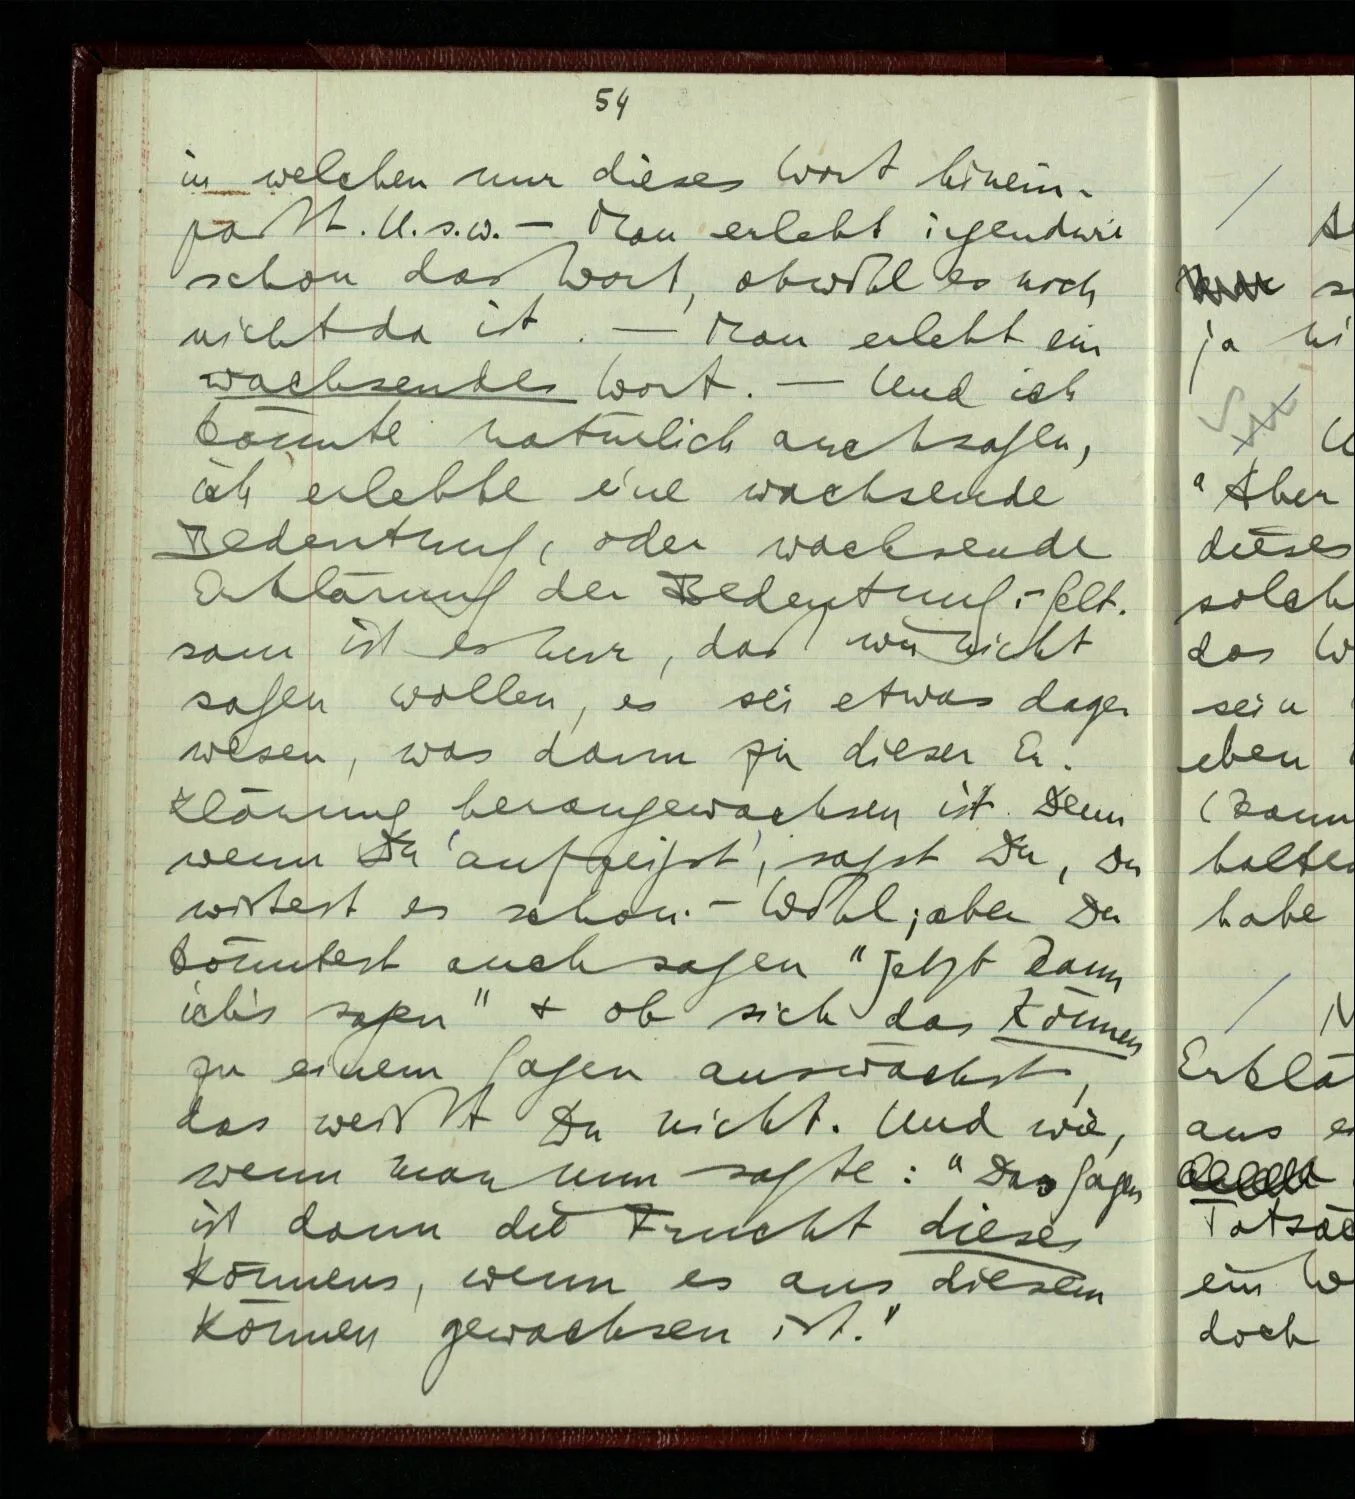 54
in welchen nur dieses Wort hinein-
paßt. U.s.w. – Man erlebt irgendwie
schon das Wort, obwohl es noch
nicht da ist. — Man erlebt ein
wachsendes Wort. — Und ich
könnte natürlich auch sagen,
ich erlebte eine wachsende
Bedeutung, oder wachsende
Erklärung der Bedeutung. – Selt-
sam ist es nur, daß wir nicht
sagen wollen, es sei etwas dage
wesen, was dann zu dieser Er-
klärung herangewachsen ist. Denn
wenn Du 'aufzeigst', sagst Du, Du
wißtest es schon. – Wohl; aber Du
könntest auch sagen "jetzt kann
ich's sagen" + ob sich das Können
zu einem Sagen auswächst,
das weißt Du nicht. Und wie,
wenn man nun sagte: "Das Sagen
ist dann die Frucht dieses
Könnens, wenn es aus diesem
Können gewachsen ist."
ja
"Aber
dieses
solch
das
sein
eben
(kann
halten
habe
Erklä
aus
Tatsac
ein
doch